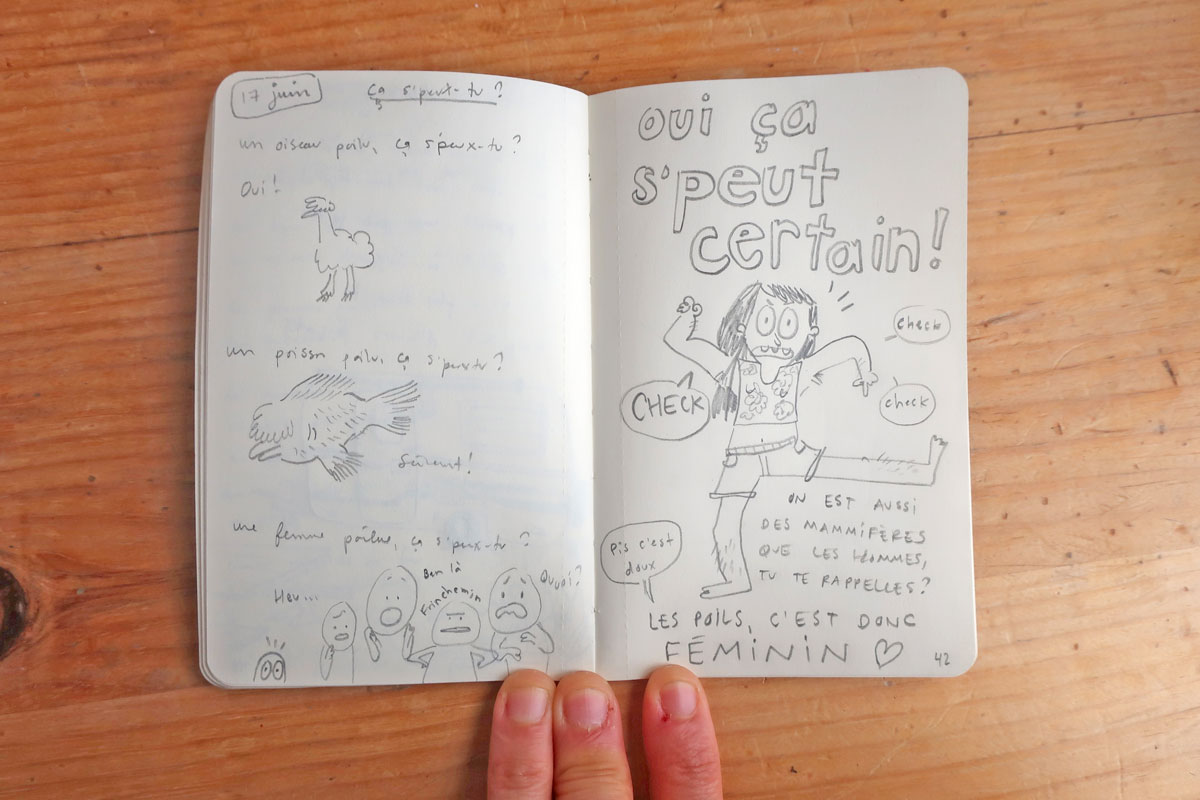 17 juin
ça s'peut-tu ?
un oiseau poilu, ça s'peux-tu ?
Oui !
un poisson poilu, ça s'peux-tu ?
une femme poilue, ça s'peux-tu ?
Heu...
Ben là
Frinchemin
Quoi ?
oui ça
s'peut
certain !
check
CHECK
check
ON EST AUSSI
DES MAMMIFÈRES
QUE LES HOMMES,
TU TE RAPPELLES ?
pis c'est
doux
LES POILS, C'EST DONC
FÉMININ ♡
42